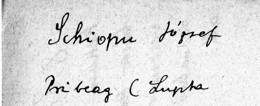 Schiopu József
Pribeag ( Lupta